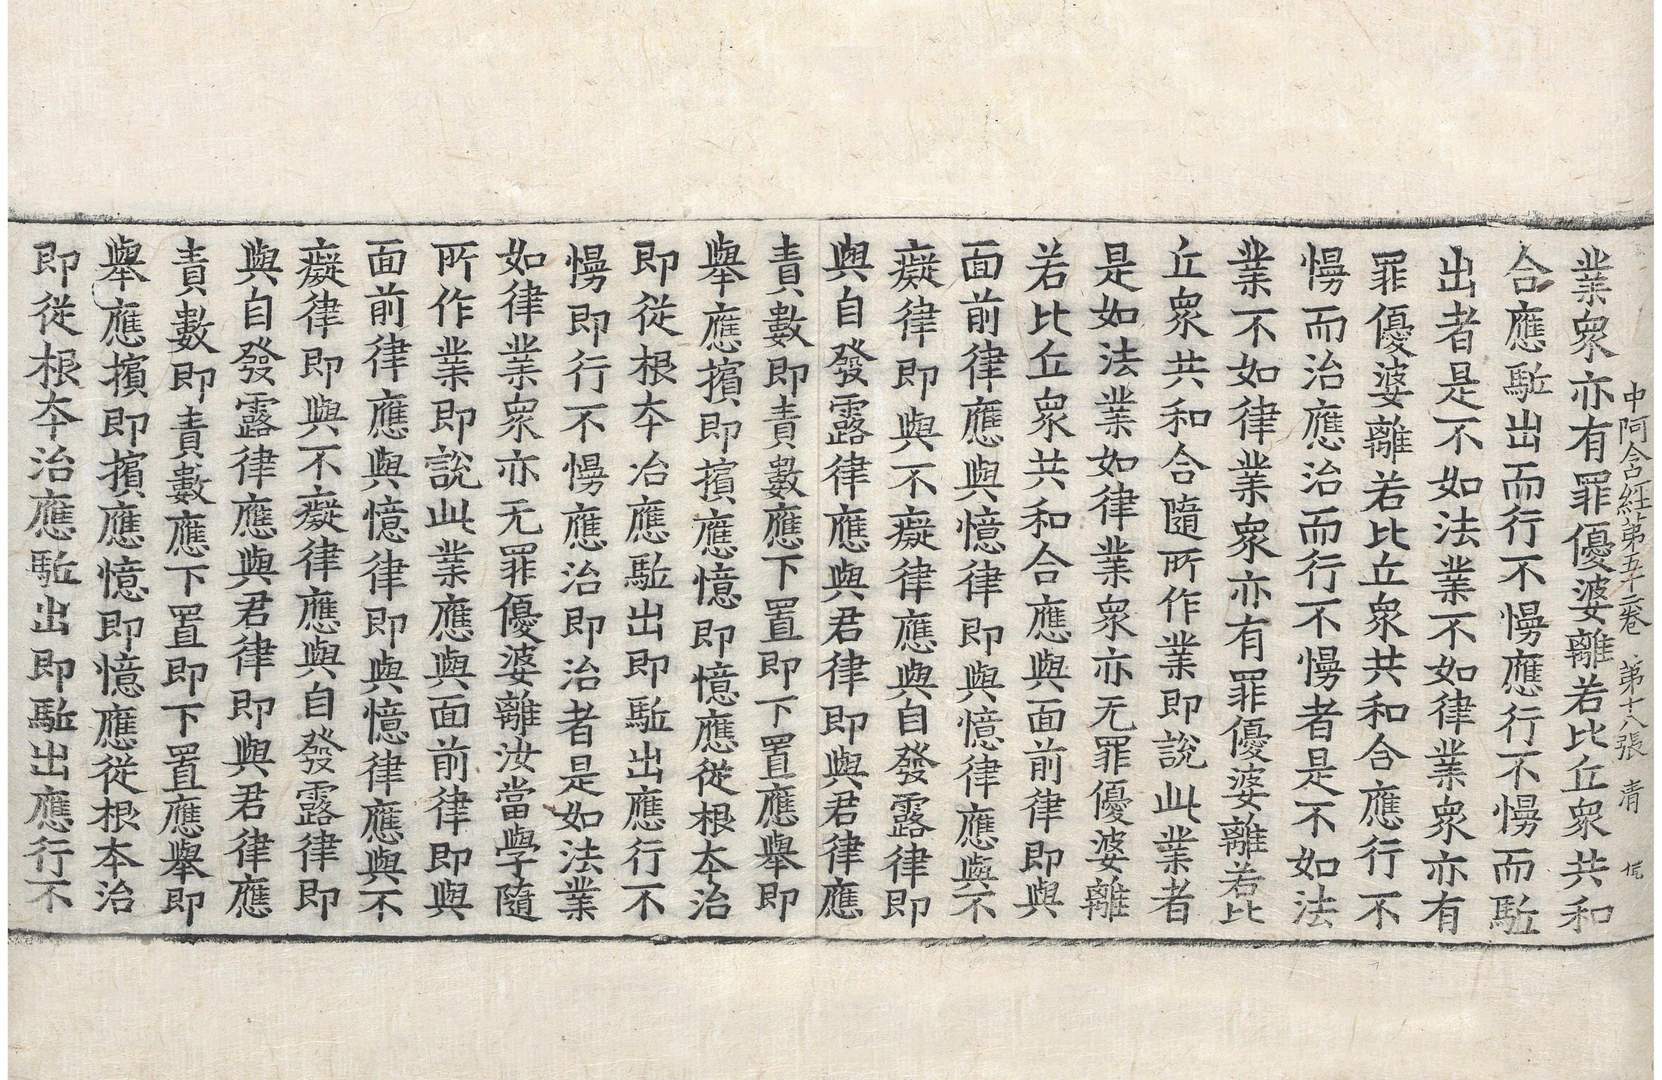 中阿含經第五十二卷 第十八張 淸
業衆亦有罪優婆離若比丘衆共和
合應駈出而行不慢應行不慢而駈
出者是不如法業不如律業衆亦有
罪優婆離若比丘衆共和合應行不
慢而治應治而行不慢者是不如法
業不如律業衆亦有罪優婆離若比
丘衆共和合隨所作業即說此業者
是如法業如律業衆亦无罪優婆離
若比丘衆共和合應與面前律即與
面前律應與憶律即與憶律應與不
癡律即與不癡律應與自發露律即
與自發露律應與君律即與君律應
責數即責數應下置即下置應擧即
擧應擯即擯應憶即憶應從根本治
即從根夲治應駈出即駈出應行不
慢即行不慢應治即治者是如法業
如律業衆亦无罪優婆離汝當學隨
所作業即說此業應與面前律即與
面前律應與憶律即與憶律應與不
癡律即與不癡律應與自發露律即
與自發露律應與君律即與君律應
責數即責數應下置即下置應擧即
擧應擯即擯應憶即憶應從根本治
即從根夲治應駈出即駈出應行不